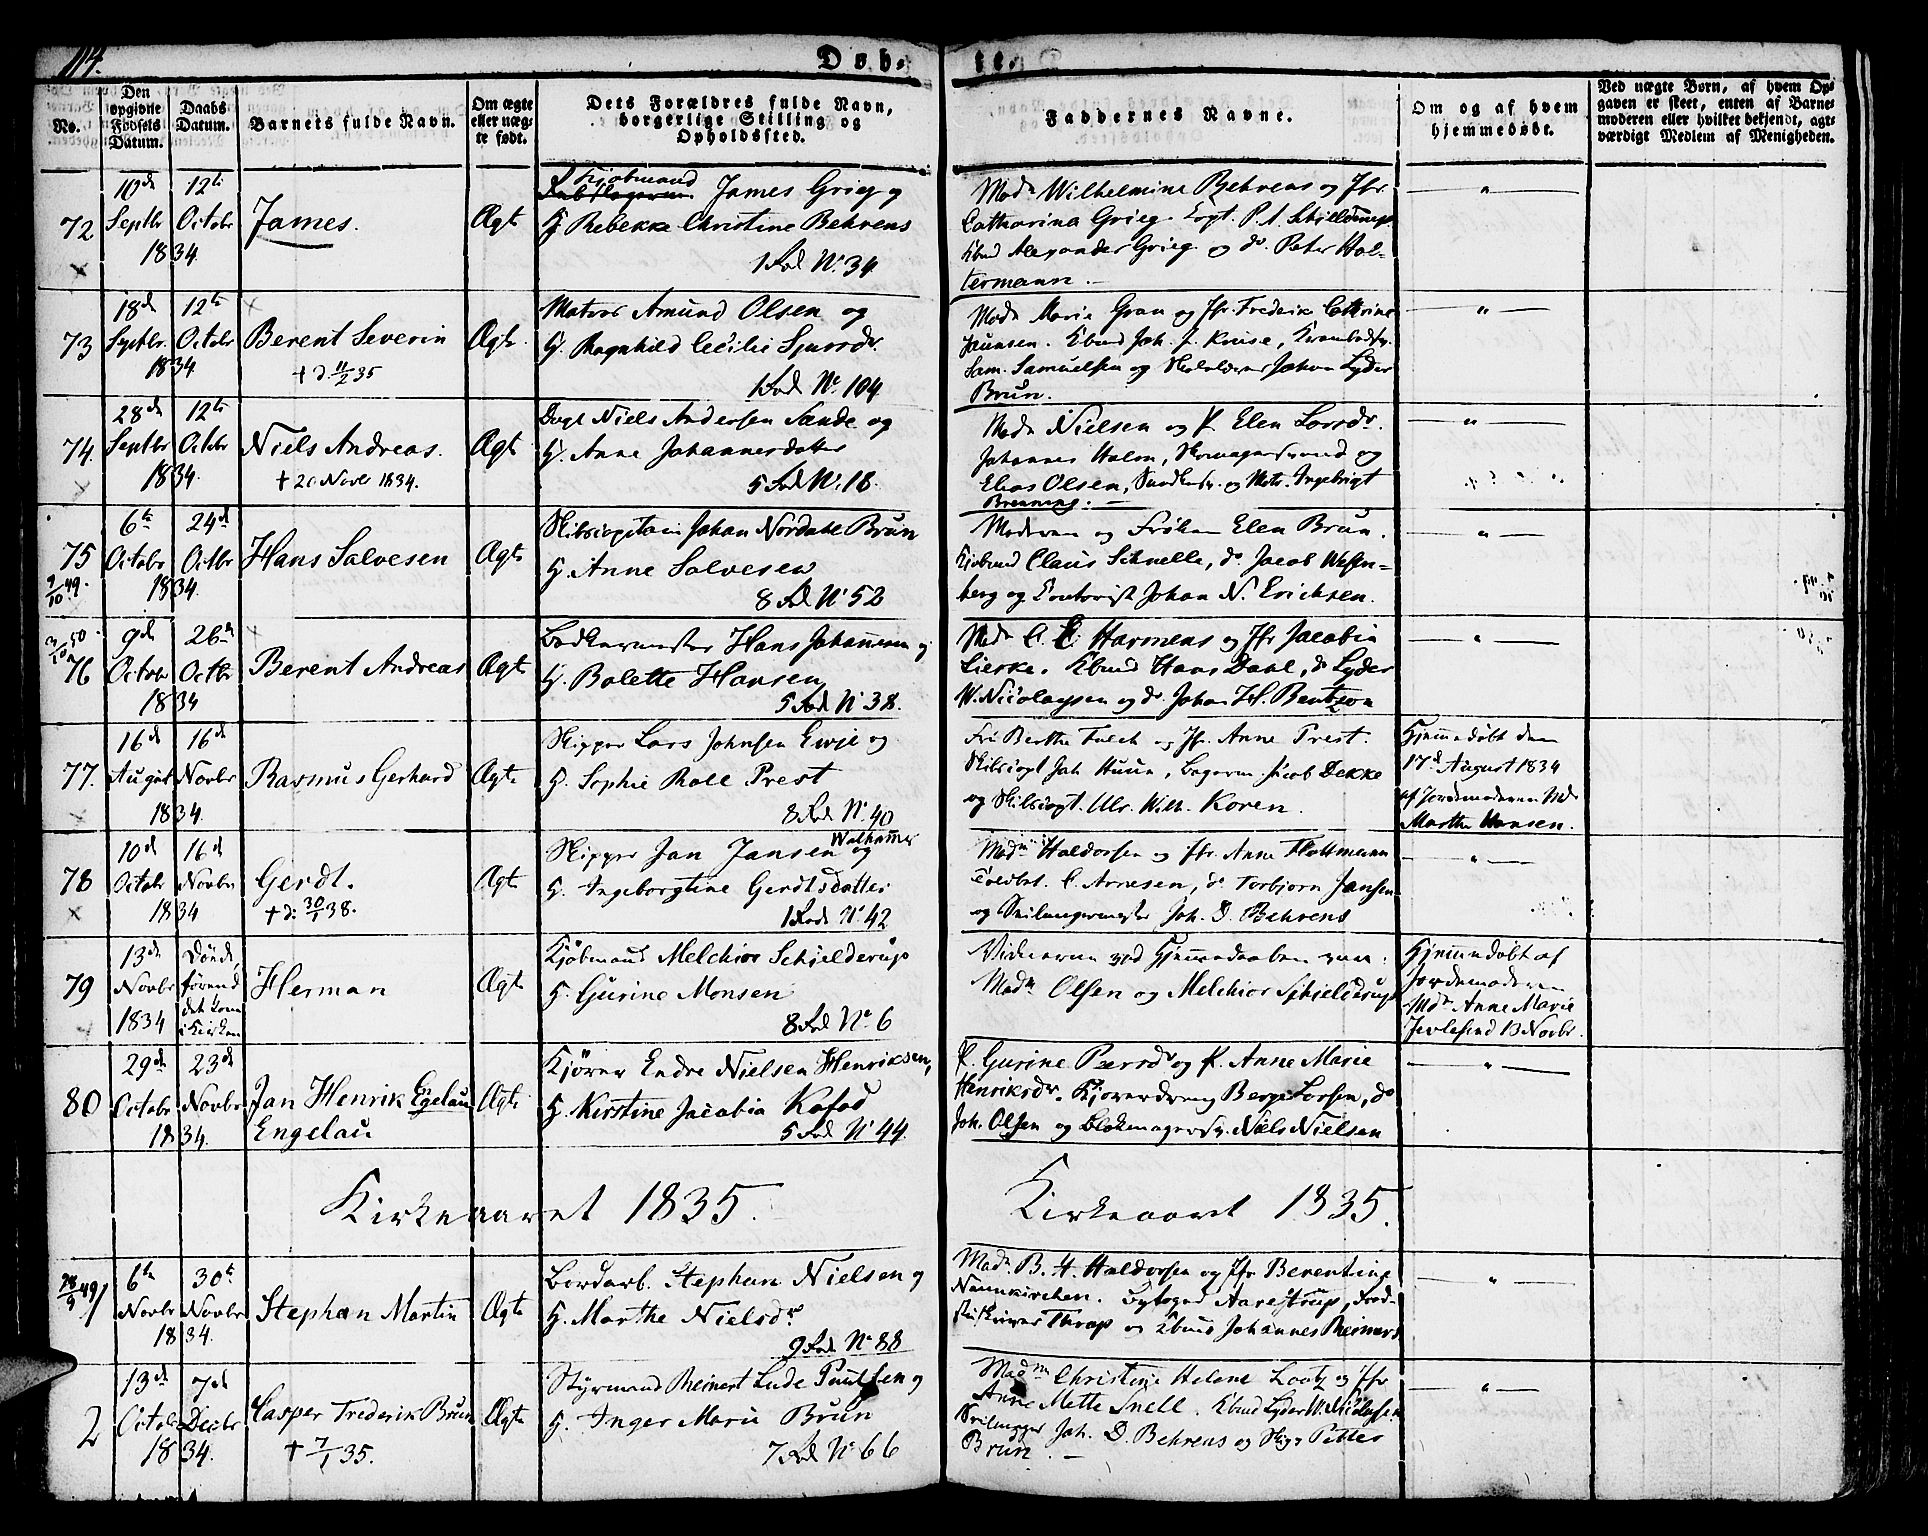 114.
Døb-
te.
No.
Den
opgivne
Fødsels
Datum.
Daabs
Datum.
Barnets fulde Navn.
Om ægte
eller uæg-
te født.
Dets Forældres fulde Navn,
borgerlige Stilling og
Opholdssted.
Faddernes Navne.
Om og af hvem
hjemmedøbt.
Ved uægte Børn, af hvem Op-
gaven er skeet, enten af Barne-
moderen eller hvilket bekjendt, agt-
værdigt Medlem af Menigheden.
72
10de Septbr 1834
12te Octobr
James.
Ægte
Kjøbmand James Grieg og
H. Rebekke Christine Behrens
1 Rod No 34
Madm Wilhelmine Behrens og Jfr
Catharina Grieg. Capt. P. A. Schilderup
Kbmd Alexander Grieg og do. Peter Hol-
termann.
73
18de Septbr. 1834
12te Octobr
Berent Severin
+ d. 11/2 35
Ægte.
Matros Amund Olsen og
H. Ragnhild Cecilie Sjursdr.
1 Rod No 104
Madm Marie Gran og Jfr. Frederike Cathrine
Jaunsen. Kbmd Joh. J. Kruse,
Sam. Samuelsen og Johan Lyder
Brun.
74.
28de Septbr 1834.
12te Octbr
Niels Andreas.
+ 20 Novbr 1834.
Ægte
Dagl Niels Andersen Sande og
H. Anne Johannesdatter
5 Rod No. 18.
Madm Nielsen og P. Elen Larsdr.
Johannes Holm, Skomagersvend og
Elias Olsen, og Matr. Ingebrigt
75
9/10 49.
6te Octobr 1834.
24de Octbr
Hans Salvesen
Ægte
Skibscapitain Johan Nordahl Brun
H. Anne Salvesen
8 Rod No 52
Moderen og Frøken Elen Brun.
Kjøbmd Claus Schnelle, do. Jacob Westen-
berg og Contorist Johan N. Erichsen.
76
9de Octobr 1834
26de Octbr
Berent Andreas
Ægte
Bødkermester Hans Johannesen og
H. Bolette Hansen
5 Rod No 38.
Madm C. E. Harmens og Jfr Jacobia
Lierke. Kbmd Hans Dahl, do Lyder
W. Nicolaysen og do. Johan H. Bentzon
77.
16de August 1834.
16de Novbr
Rasmus Gerhard
Ægte
Skipper Lars Johnsen Ewje og
H. Sophie Roll Prest
8 Rod No. 40
Fru Berthe Falch og Jfr. Anne Prest.
Skibscapt Joh Huun, Bagerm. Jacob Dekke
og Skibscapt. Ulr. Wilh. Koren.
Hjemmedøbt den
17de August 1834
af Jordemoderen Md.
Marthe Hansen.
78
10de Octobr 1834
16de Novbr
Gerdt.
+ d: 30/1 38.
Ægte
Skipper Jan Jansen Walhammer og
H. Ingeborgtine Gerdtsdatter
1 Rod No. 42
Madm Haldorsen og Jfr. Anne Flottmann
Toldbet. C. Arnesen, do. Torbjørn Jansen
og Seilmagermester Joh. D. Behrens
79
13de Novbr 1834
Døde,
førend
det kom
i Kirken
Herman
Ægte
Kjøbmand Melchior Schjelderup
H. Gurine Monsen
8 Rod No. 6
Vidnerne ved Hjemmedaaben vare:
Madm Olsen og Melchior Schjelderup
Hjemmedøbt af
Jordemoderen
Mdm Anne Marie
13 Novbr.
80
29de Octobr 1834.
23de Novbr
Jan Henrik Egelau
Engelau
Ægte
Kjører Endre Nielsen Henriksen,
H. Kirstine Jacobia Kofod
5 Rod No 44.
P. Gurine Peersdr og P. Anne Marie
Henriksdr. Kjørerdreng Berge Larsen, do
Joh. Olsen og Blokmagersv. Niels Nielsen
Kirkeaaret 1835.
Kirkeaaret 1835.
1
6te Novbr 1834.
30te Novbr
Stephan Martin
Ægte
Bordarb. Stephan Nielsen og
H. Marthe Nielsdr
9 Rod No 88
Madm. B. H. Haldorsen og Jfr Berentine
Neunkirchen. Byfoged Aarestrup,
Thrap og Kbmd Johannes Reiners
2
13de Octobr 1834.
7de Decbr
Casper Frederik Brun
+ 7/1 35.
Ægte
Styrmand Reinert Lude Poulsen og
H. Inger Marie Brun
7 Rod No 66
Madm Christine Helene Lootz og Jfr
Anne Mette Snell. Kbmd Lyder W. Nicolaysen
Joh. D. Behrens og Skipr Petter
Brun.